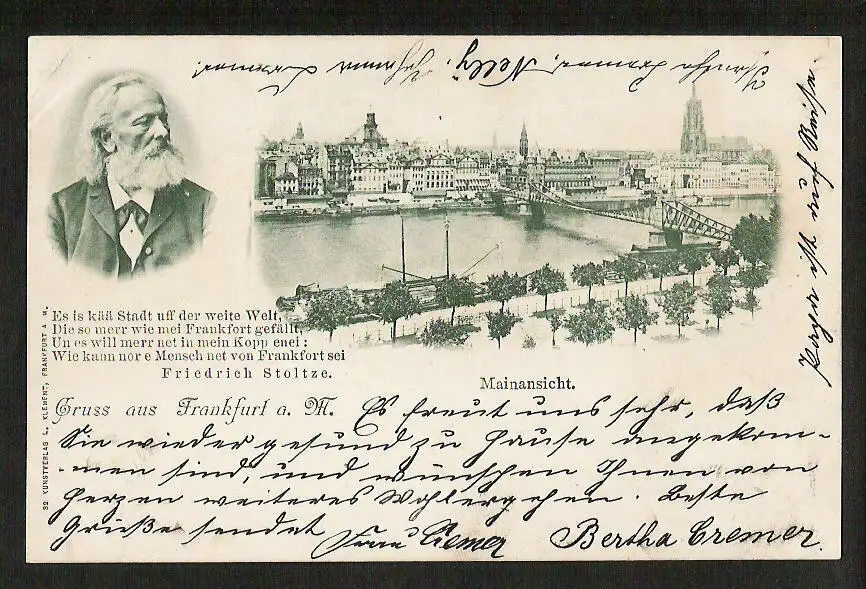 Es is kää Stadt uff der weite Welt,
Die so merr wie mei Frankfort gefällt,
Un es will merr net in mein Kopp enei:
Wie kann nor e Mensch net von Frankfort sei
Friedrich Stoltze.
Mainansicht.
Gruss aus Frankfurt a. M. Es freut uns sehr, daß
Sie wieder gesund zu Hause angekom-
-men sind, und wünschen Ihnen von
Herzen weiteres Wohlergehen. Beste
Grüße sendet Frau Cremer Bertha Cremer.
Nelly. Johanna Cremer
ist auf
32 KUNSTVERLAG L. KLEMENT, FRANKFURT A M.